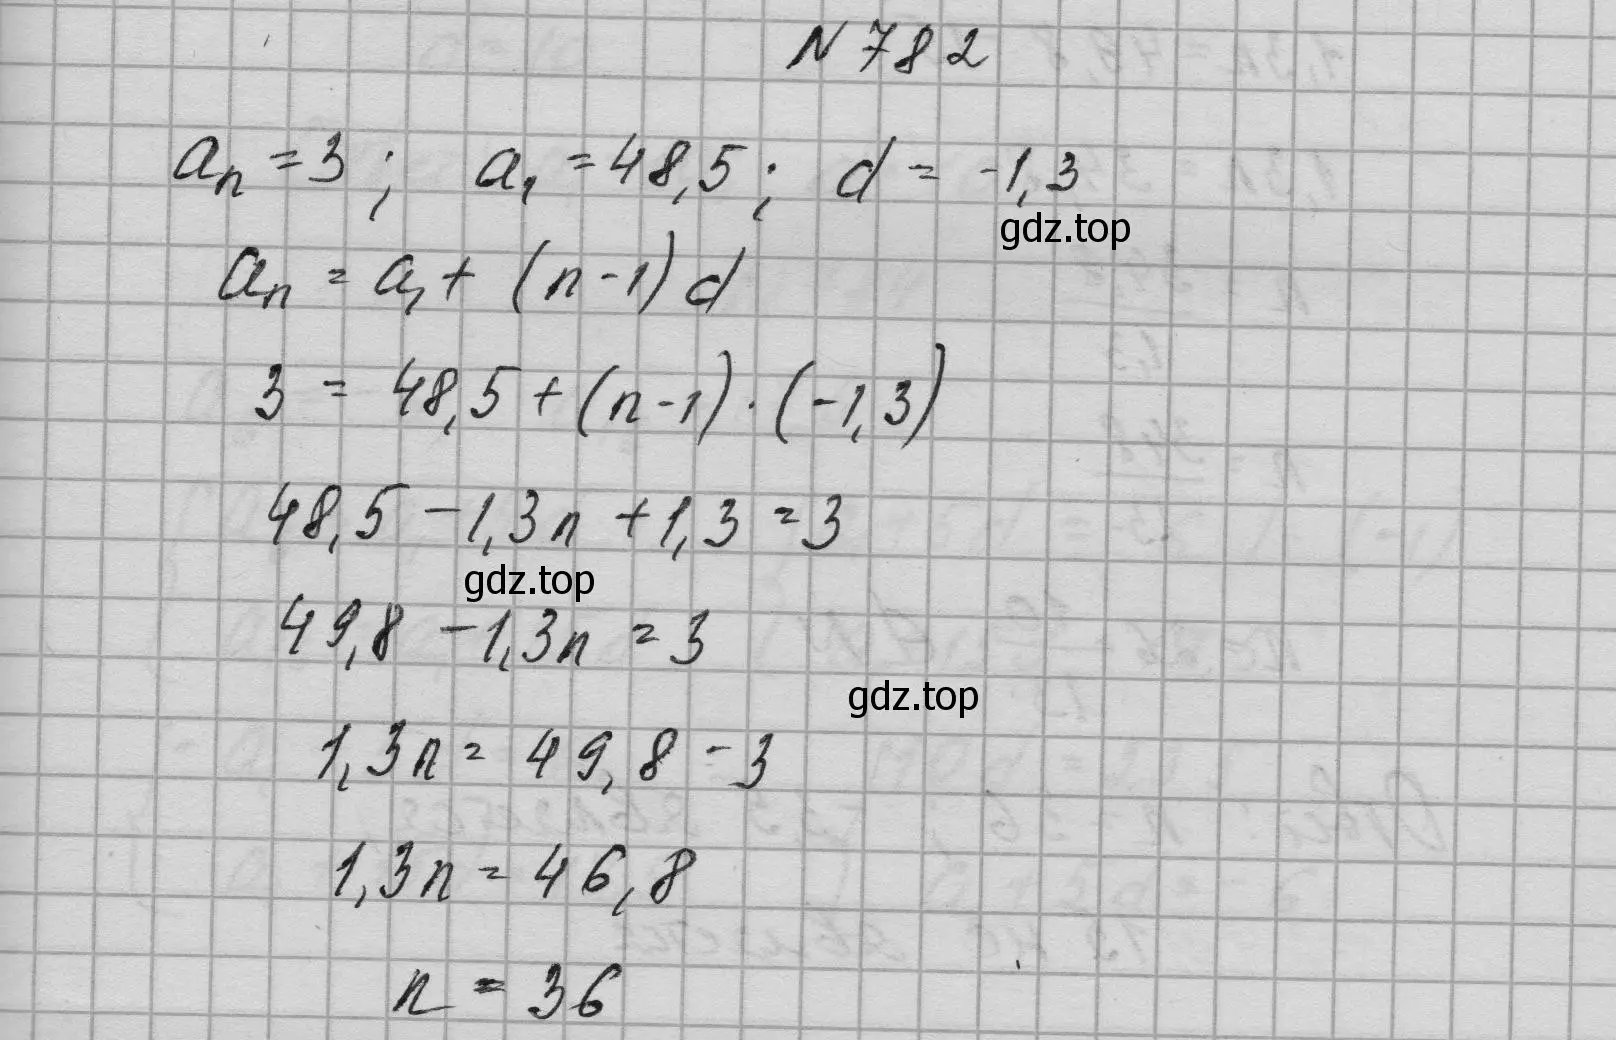 N 782
aₙ = 3 ; a₁ = 48,5 ; d = -1,3
gdz.top
aₙ = a₁ + (n-1) d
3 = 48,5 + (n-1) · (-1,3)
48,5 - 1,3n + 1,3 = 3
gdz.top
49,8 - 1,3n = 3
gdz.top
1,3n = 49,8 - 3
1,3n = 46,8
n = 36